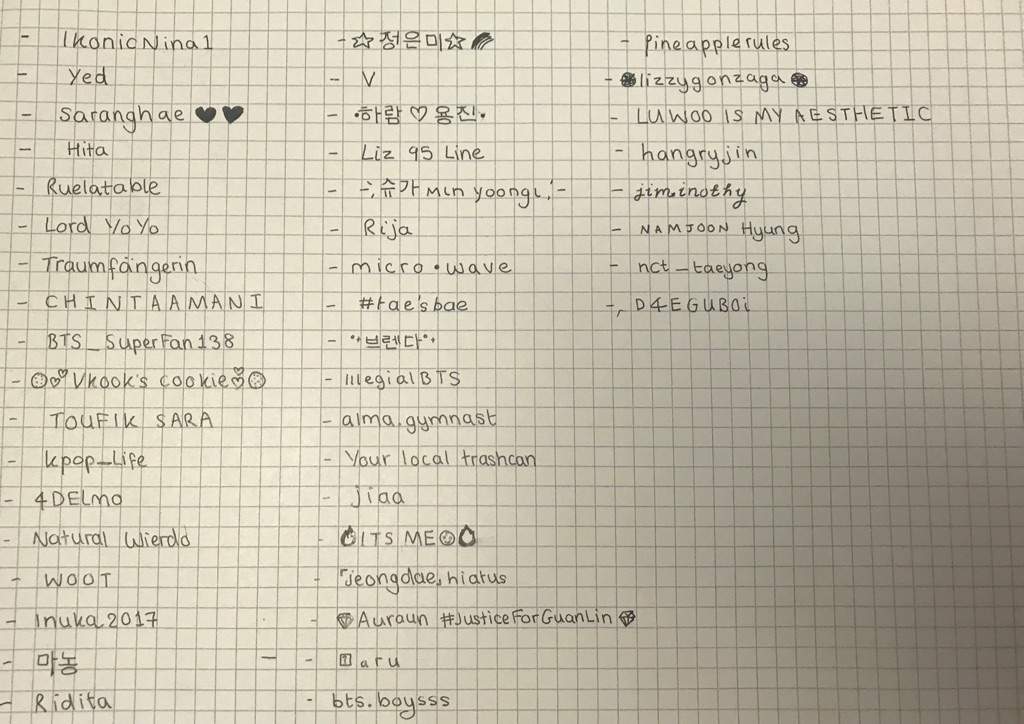 - IkonicNina1
- Yed
- Saranghae ♥♥
- Hita
- Ruelatable
- Lord YoYo
- Traumfängerin
- CHINTAAMANI
- BTS_SuperFan138
- 🍪💕Vkook's cookie💕🍪
- TOUFIK SARA
- kpop_Life
- 4DELmo
- Natural Wierdo
- WOOT
- Inuka2017
- 마농
- Ridita
- ☆정은미☆
- V
- •하람♡용진•
- Liz 95 Line
- -¦슈가 Min yoongi¦-
- Rija
- micro•wave
- #tae'sbae
- 브렌다
- IllegialBTS
- alma.gymnast
- Your local trashcan
- jiaa
- ITS ME
- jeongdae, hiatus
- Auraun #JusticeForGuanLin
- aru
- bts.boysss
- Pineapplerules
- lizzygonzaga
- LUWOO IS MY AESTHETIC
- hangryjin
- jiminothy
- NAMJOON Hyung
- nct_taeyong
- D4EGUBOi